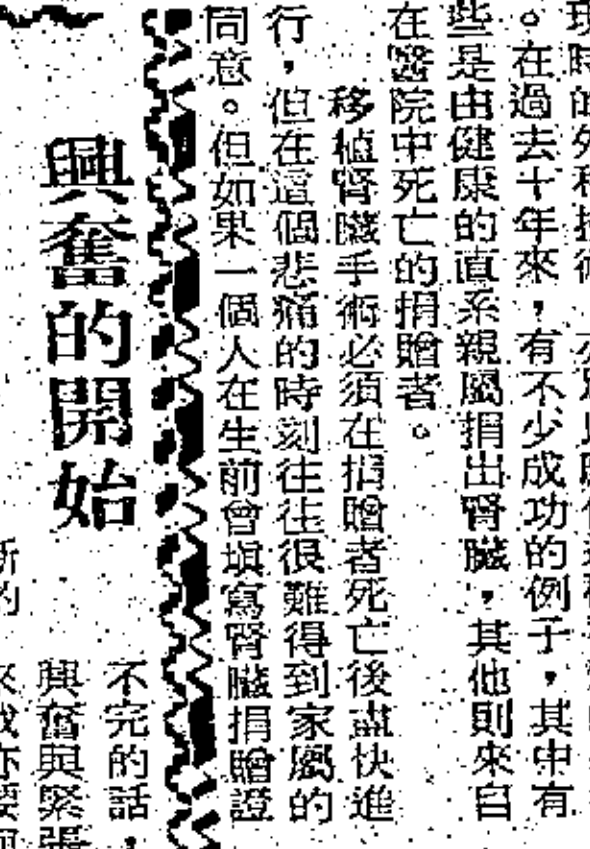 。在過去十年來，有不少成功的例子，其中有
些是由健康的直系親屬捐出腎臟，其他則來自
在醫院中死亡的捐贈者。
移植腎臟手術必須在捐贈者死亡後盡快進
行，但在這個悲痛的時刻往往很難得到家屬的
同意。但如果一個人在生前曾塡寫腎臟捐贈證
興奮的開始
不完的話，
興奮與緊張